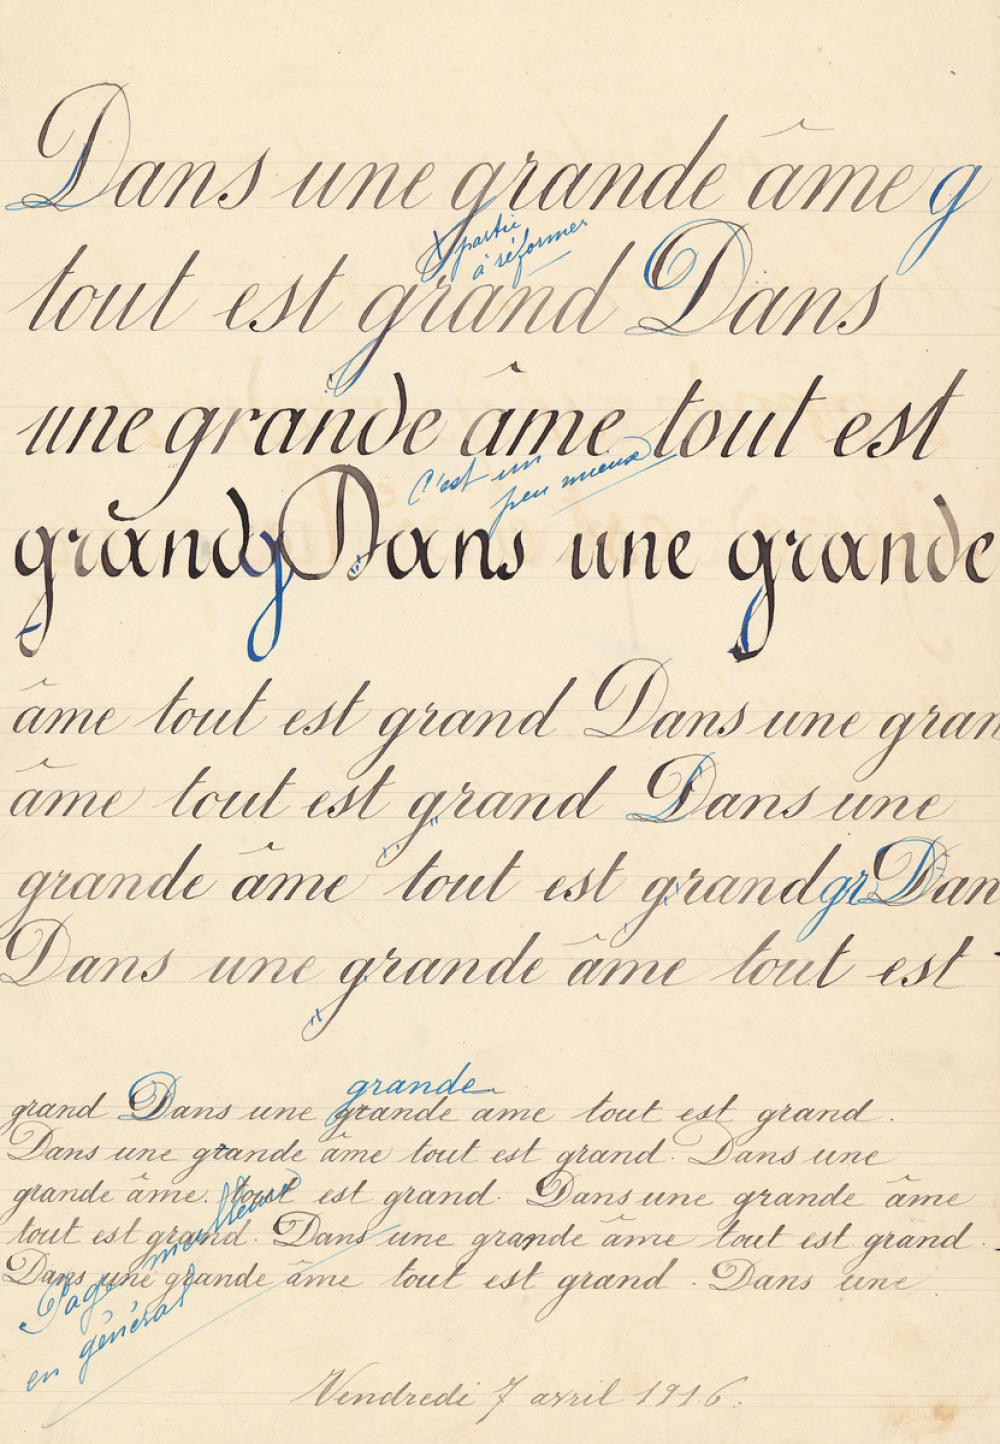 Dans une grande âme g
partie
à réformer
tout est grand Dans
une grande âme tout est
C'est un
peu mieux
grand g Dans une grande
âme tout est grand Dans une gran
âme tout est grand Dans une
grande âme tout est grand gr Dan
Dans une grande âme tout est
grande
grand Dans une grande ame tout est grand.
Dans une grande âme tout est grand. Dans une
grande âme. tout est grand. Dans une grande âme
tout est grand. Dans une grande âme tout est grand.
Dans une grande âme tout est grand. Dans une
Page meilleure
en général
Vendredi 7 avril 1916.